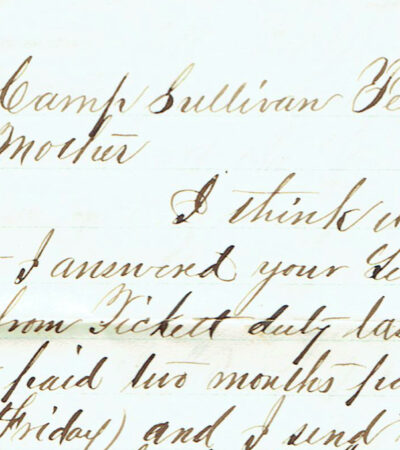 Camp Sullivan Fe
Mother
I think w
I answered your Le
from Pickett duty las
paid two months pa
Friday) and I send